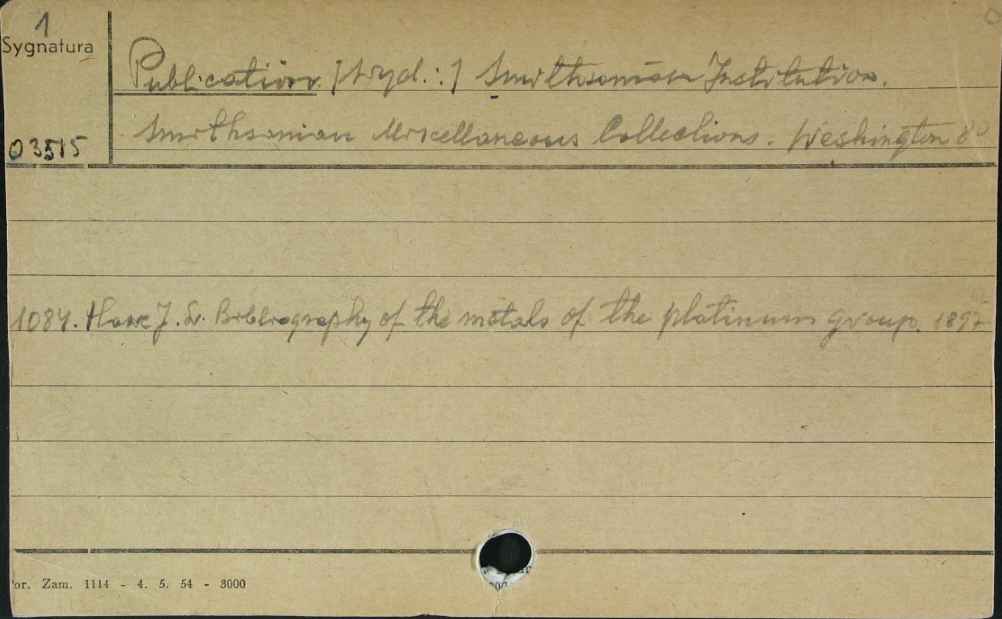 1
Sygnatura
Publication. [Wyd.:] Smithsonian Institution.
03515
Smithsonian Miscellaneous Collections. Washington 8º
1084. Howe J. L. Bibliography of the metals of the platinum group. 1897
or. Zam. 1114 - 4. 5. 54 - 3000